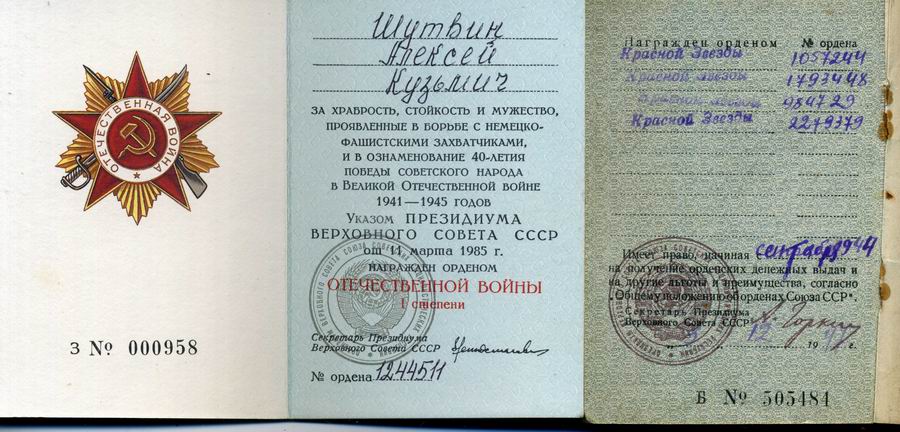 ОТЕЧЕСТВЕННАЯ ВОЙНА
З № 000958
Шутвин
Алексей
Кузьмич
ЗА ХРАБРОСТЬ, СТОЙКОСТЬ И МУЖЕСТВО,
ПРОЯВЛЕННЫЕ В БОРЬБЕ С НЕМЕЦКО-
ФАШИСТСКИМИ ЗАХВАТЧИКАМИ,
И В ОЗНАМЕНОВАНИЕ 40-ЛЕТИЯ
ПОБЕДЫ СОВЕТСКОГО НАРОДА
В ВЕЛИКОЙ ОТЕЧЕСТВЕННОЙ ВОЙНЕ
1941—1945 ГОДОВ
УКАЗОМ ПРЕЗИДИУМА
ВЕРХОВНОГО СОВЕТА СССР
от 11 марта 1985 г.
НАГРАЖДЕН ОРДЕНОМ
ОТЕЧЕСТВЕННОЙ ВОЙНЫ
I степени
Секретарь Президиума
Верховного Совета СССР
№ ордена 1244511
Награжден орденом № ордена
Красной Звезды 1057244
Красной Звезды 1793448
Красной Звезды 984729
Красной Звезды 2279379
Имеет право, начиная сентября 1944
на получение орденских денежных выдач и
на другие льготы и преимущества, согласно
„Общему положению об орденах Союза ССР".
Секретарь Президиума
Верховного Совета СССР А. Горкин
12 19 г.
Б № 505484